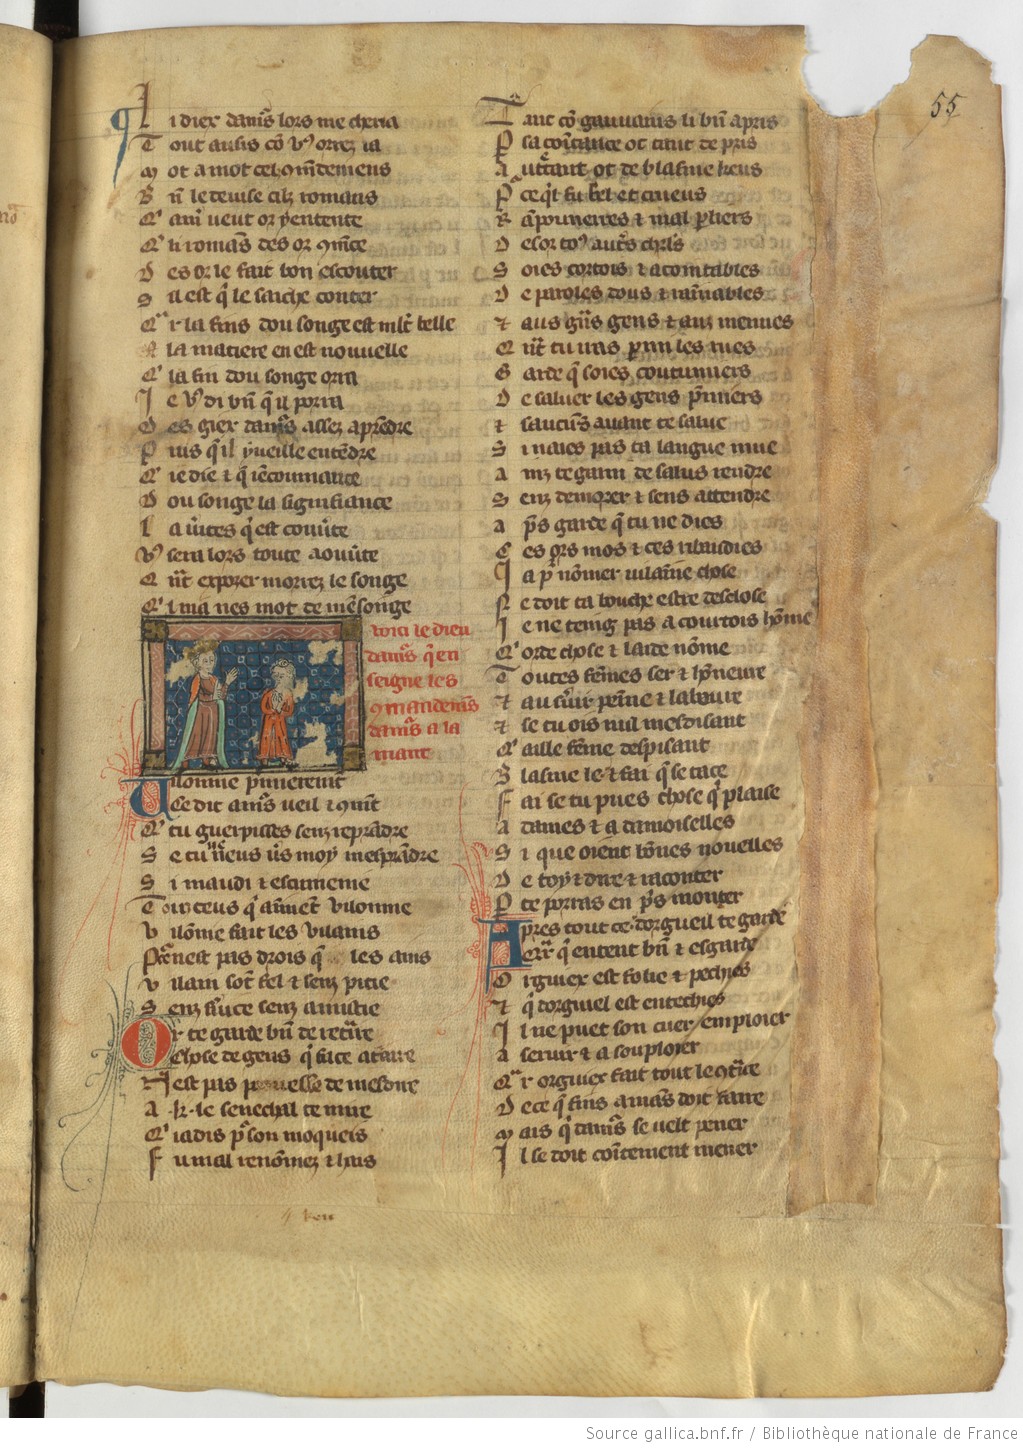 55
Li diex damrs lors me cheria
Tout ausis co vs orrez ia
Mot a mot ces 9mdemens
Bn le deuise cilz romans
Qi amer ueut or y entente
Qi li romans des or 9mce
Des or le fait bon escouter
Sil est q le saiche conter
Qr la fins dou songe est mlt belle
la matiere en est nouuelle
Qi la fin dou songe orra
Ie vs di bn q il porra
Des giex damrs assez aprendre
Puis q il y ueille entendre
Q ie die et q ie coumance
Dou songe la signifiance
La uites q est couuerte
Vs sera lors toute aouuerte
Qnt exposer morrez le songe
Qi ni a nes mot de mesonge
voici le dieu
damrs q en
seigne les
9mandems
damrs a la
mant
Vilonnie primerement
Ce dit amrs ueil et 9mt
Q tu guerpisses senz reprendre
Se tu ne ueus uers moy mesprendre
Si maudi et escumenie
Touz ceus q aimet vilonnie
Vilonie fait les vilains
Por ce nest pas drois q les ains
Vilain sont fel et senz pitie
Senz seruice senz amistie
Or te garde bn de retraire
Chose de gens q face a taire
Nest pas proesse de mesdire
A .k. le senechal te mire
Qi iadis por son moqueis
Fu mal renomez et hais
Tant co gauuains li bn apris
Por sa cointance ot tant de pris
Autant ot de blasme keus
Por ce q il fu fel et crueus
Ramponierres et mal parliers
Desor toz autres chrls
Soies cortois et acointables
De paroles dous et rainables
Et aus grans gens et aus menues
Et qnt tu uas parmi les rues
Garde q soies coutumiers
De saluer les gens primiers
Et saucuns auant te salue
Si naies pas ta langue mue
Ainz te garni de salus rendre
Senz demorer et sens attendre
Apres garde q tu ne dies
Ces ors mos et ces ribaudies
Ia por nomer vilainne chose
Ne doit ta bouche estre desclose
Ie ne teing pas a courtois home
Qi orde chose et laide nome
Toutes femes ser et honeure
Et au seruir peine et labeure
Et se tu ois nul mesdisant
Qi aille feme despisant
Blasme le et fai q se tace
Fai se tu pues chose q plaise
A dames et a damoiselles
Si que oient bones nouelles
De toy et dire et raconter
Par ce porras en pris monter
Apres tout ce dorgueil te garde
Car qi entent bn et esgarde
Orguiex est folie et pechies
Et q dorguiel est entechies
Il ne puet son cuer emploier
A seruir et a souploier
Qr orguiex fait tout le 9traire
De ce q fins amans doit faire
Mais qi damrs se uelt pener
Il se doit cointement mener
keu
Source gallica.bnf.fr / Bibliothèque nationale de France